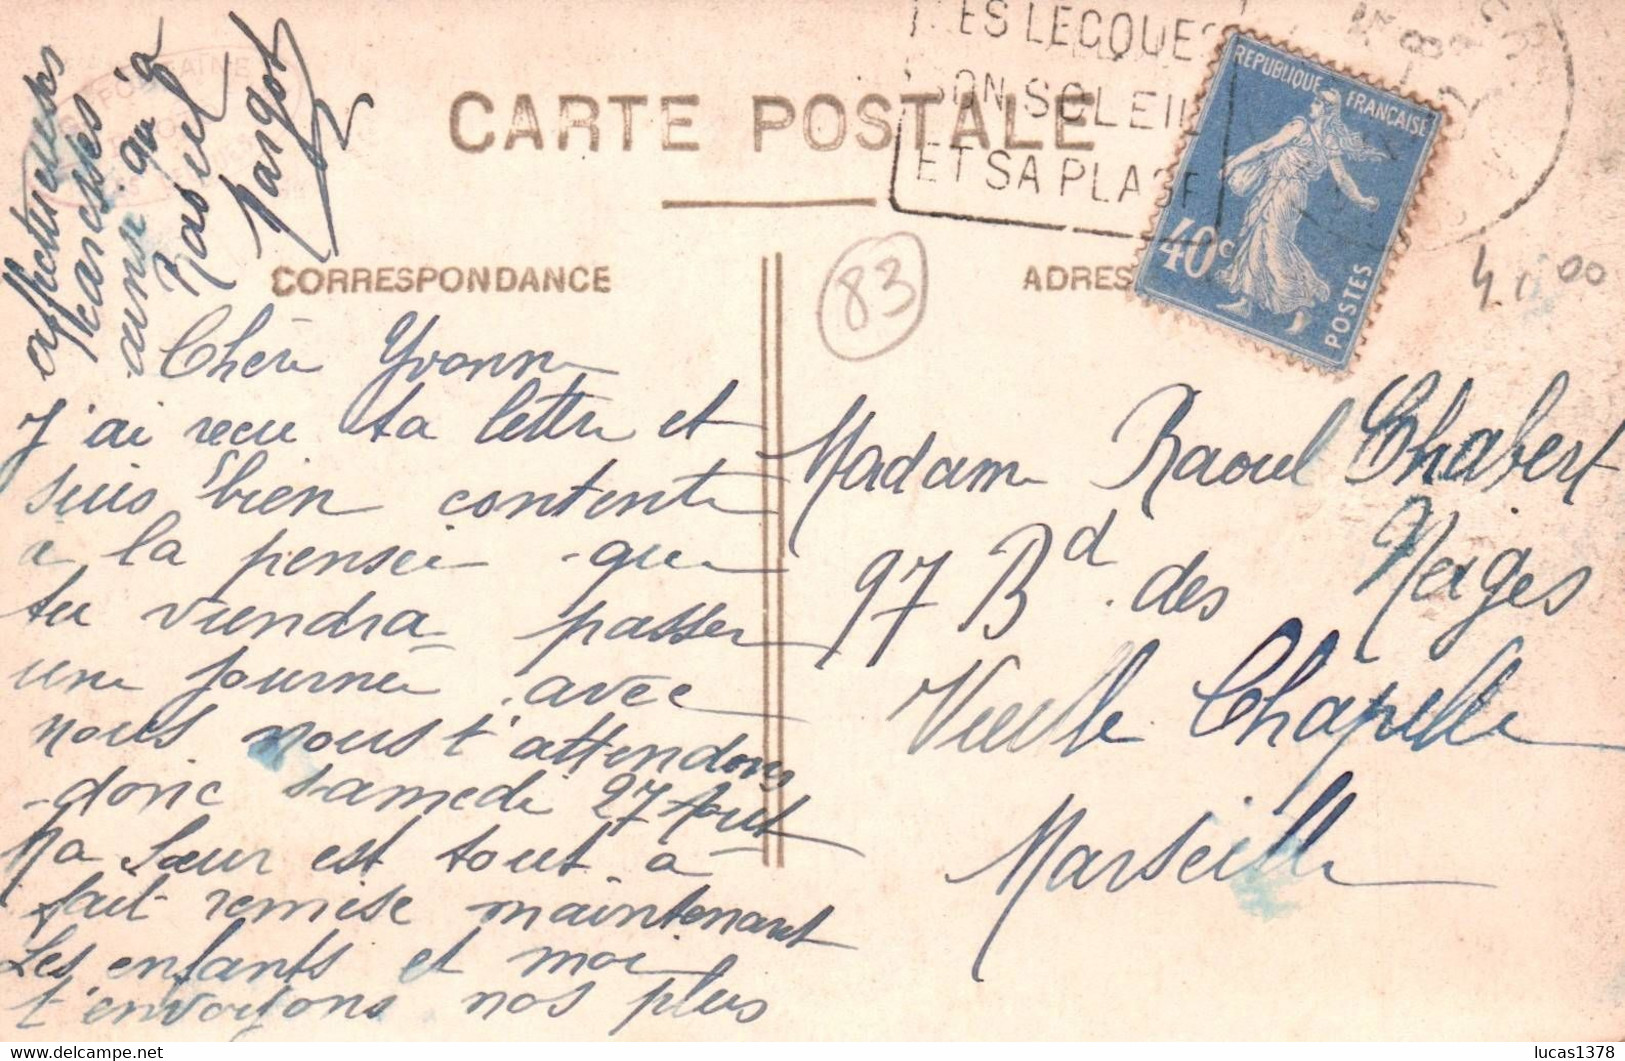 LES LECQUES
SON SOLEIL
ET SA PLAGE
REPUBLIQUE FRANÇAISE
40c
POSTES
CARTE POSTALE
CORRESPONDANCE
ADRES
83
4,00
Chère Yvonne
J'ai reçu ta lettre et
suis bien contente
à la pensée que
tu viendra passer
une journée avec
nous nous t'attendons
donc samedi 27 Août
Ma Sœur est tout à
fait remise maintenant
Les enfants et moi
t'envoyons nos plus
affectueuses
caresses
ainsi qu'à
Raoul
Margot
Madame Raoul Chabert
97 Bd des Neiges
Vieille Chapelle
Marseille
lucas1378